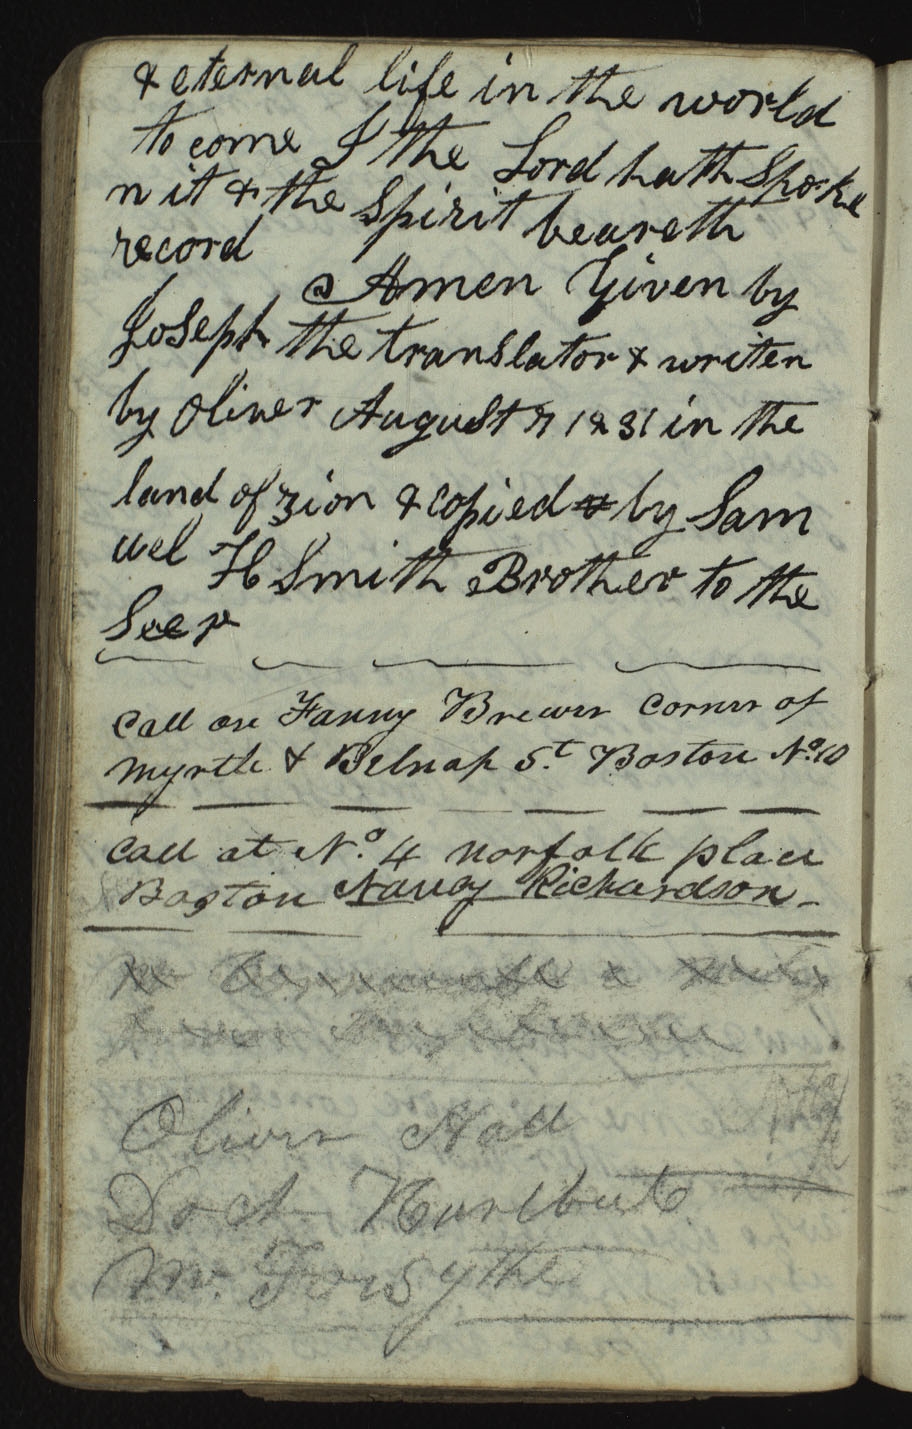 & eternal life in the world
to come I the Lord hath Spoke
n it & the Spirit beareth
record
Amen Given by
Joseph the translator & writen
by Oliver August 7 1831 in the
land of zion & copied by Sam
uel H Smith Brother to the
Seer
Call on Fanny Brewer Corner of
Myrtle & Belnap St. Boston No. 10
Call at No. 4 norfolk place
Boston Nancy Richardson
Oliver Hall
Doct Hurlbut
Mr. Forsythe